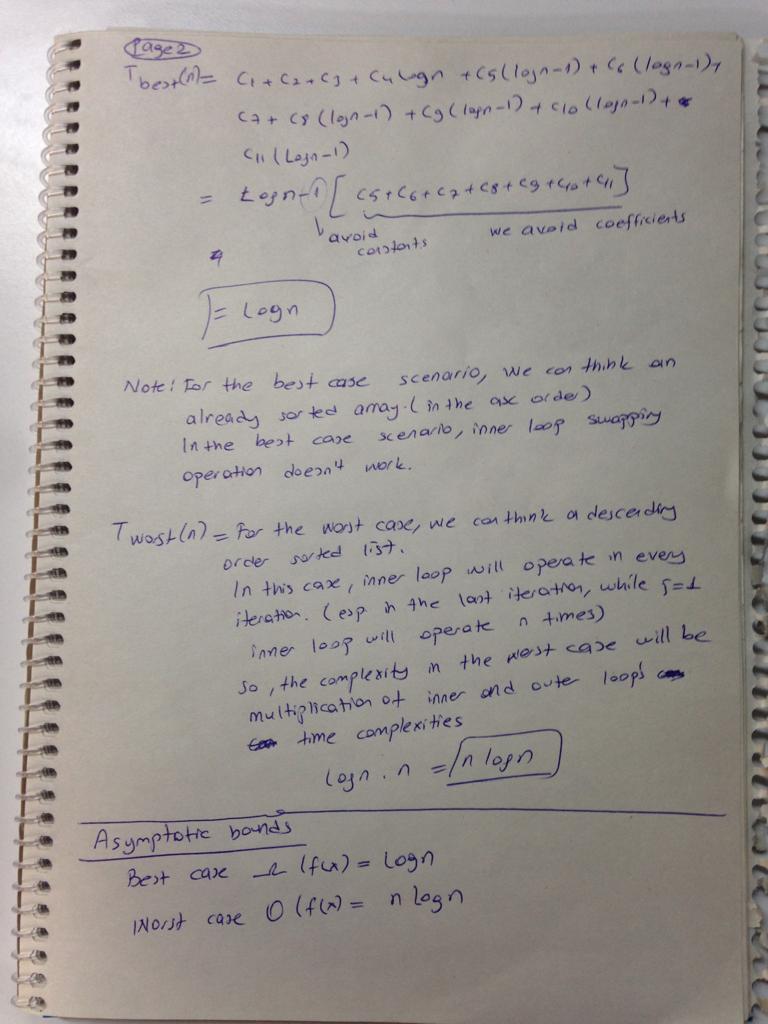 Page 2
T best(n) = C1 + C2 + C3 + C4 logn + C5 (logn-1) + C6 (logn-1) +
C7 + C8 (logn-1) + C9 (logn-1) + C10 (logn-1) +
C11 (Logn-1)
= Logn-1 [ C5 + C6 + C7 + C8 + C9 + C10 + C11 ]
avoid constants we avoid coefficients
= Logn
Note: For the best case scenario, we can think an
already sorted array. (in the asc order)
In the best case scenario, inner loop swapping
operation doesn't work.
T worst(n) = For the worst case, we can think a descending
order sorted list.
In this case, inner loop will operate in every
iteration. (esp in the last iteration, while s=1
inner loop will operate n times)
so, the complexity in the worst case will be
multiplication of inner and outer loop's
time complexities
logn . n = n logn
Asymptotic bounds
Best case Ω (f(x) = Logn
Worst case O (f(x) = n logn